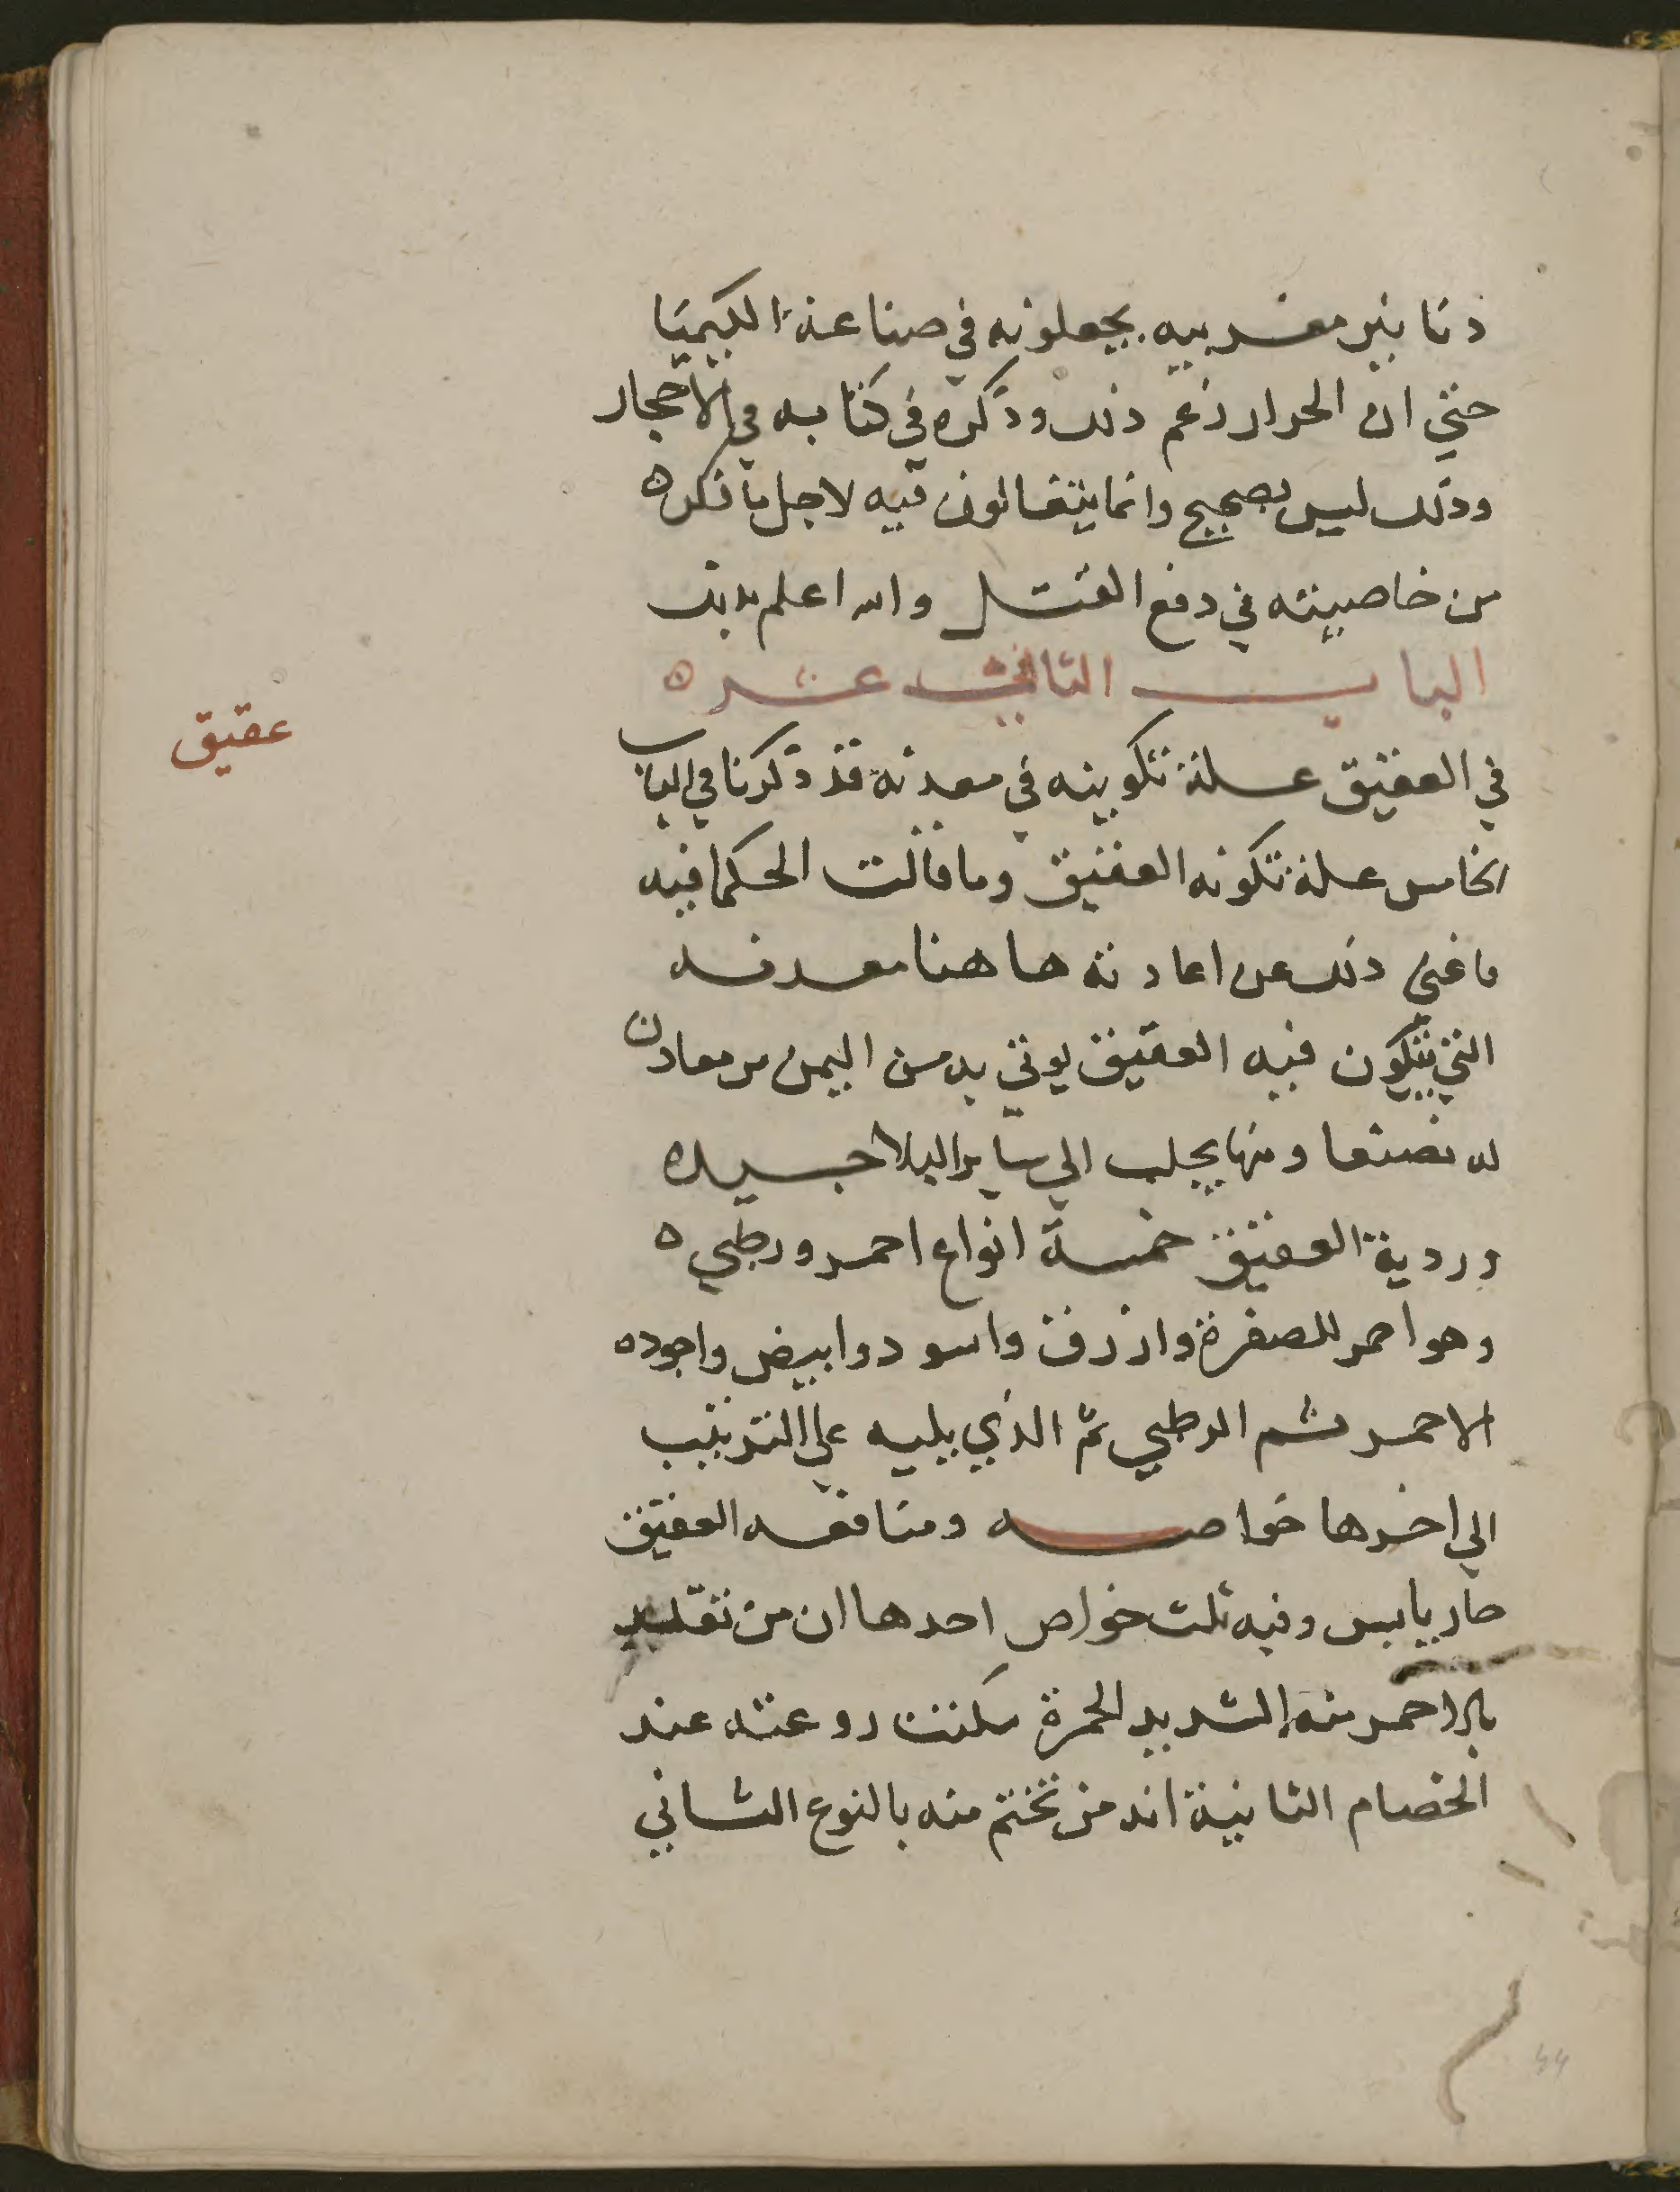 دنانير مغربيه يجعلونه في صناعة الكيميا
حتي ان الحرار زعم ذلك وذكره في كتابه في الاحجار
وذلك ليس بصحيح وانما يتغالون فيه لاجل ما نكره
من خاصيته في دفع القتل والله اعلم بذلك
الباب الثاني عشر ه
عقيق
في العقيق علة تكوينه في معدنه قد ذكرنا في الباب
الخامس علة تكونه العقيق وما قالت الحكما فيه
ما غني ذلك عن اعادته ها هنا معدنه
التي يتكون فيه العقيق يوتي به من اليمن من معادن
له بصنعا ومنها يجلب الي ساير البلاد جيده
ورديه العقيق خمسة انواع احمر ورطبي ه
وهو احمر للصفرة وازرق واسود وابيض واجوده
الاحمر ثم الرطبي ثم الذي يليه علي الترتيب
الي اخرها خواصه ومنافعه العقيق
حار يابس وفيه ثلث خواص احدها ان من تقلد
بالاحمر منه الشديد الحمرة سكنت روعته عند
الخصام الثانية انه من تختم منه بالنوع الثاني
44